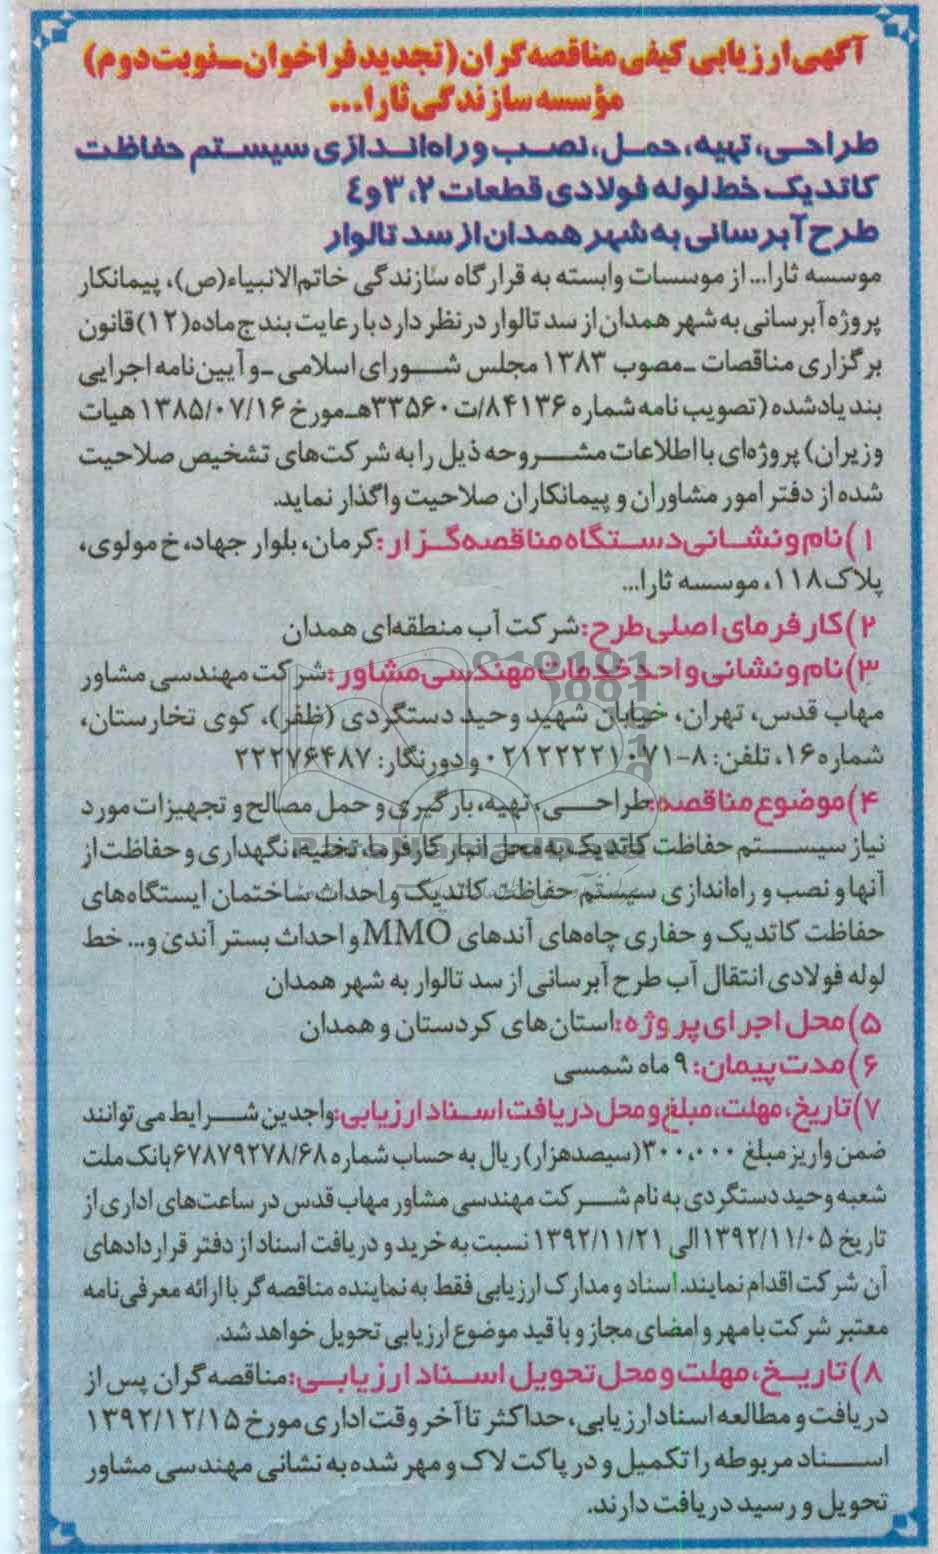 آگهی ارزیابی کیفی مناقصه گران (تجدید فراخوان ـ نوبت دوم)
مؤسسه سازندگی ثارا...
طراحی، تهیه، حمل، نصب و راه‌اندازی سیستم حفاظت
کاتدیک خط لوله فولادی قطعات ۲، ۳ و ٤
طرح آبرسانی به شهر همدان از سد تالوار
موسسه ثارا... از موسسات وابسته به قرارگاه سازندگی خاتم‌الانبیاء(ص)، پیمانکار
پروژه آبرسانی به شهر همدان از سد تالوار در نظر دارد با رعایت بند ج ماده (۱۲) قانون
برگزاری مناقصات ـ مصوب ۱۳۸۳ مجلس شورای اسلامی ـ و آیین‌نامه اجرایی
بند یاد شده (تصویب نامه شماره ۸۴۱۳۶/ت۳۳۵۶۰هـ مورخ ۱۳۸۵/۰۷/۱۶ هیات
وزیران) پروژه‌ای با اطلاعات مشروحه ذیل را به شرکت‌های تشخیص صلاحیت
شده از دفتر امور مشاوران و پیمانکاران صلاحیت واگذار نماید.
۱) نام و نشانی دستگاه مناقصه‌گزار: کرمان، بلوار جهاد، خ مولوی،
پلاک ۱۱۸، موسسه ثارا...
۲) کارفرمای اصلی طرح: شرکت آب منطقه‌ای همدان
۳) نام و نشانی واحد خدمات مهندسی مشاور: شرکت مهندسی مشاور
مهاب قدس، تهران، خیابان شهید وحید دستگردی (ظفر)، کوی تخارستان،
شماره ۱۶، تلفن: ۸-۰۲۱۲۲۲۲۱۰۷۱ و دورنگار: ۲۲۲۷۶۴۸۷
۴) موضوع مناقصه: طراحی، تهیه، بارگیری و حمل مصالح و تجهیزات مورد
نیاز سیستم حفاظت کاتدیک به محل انبار کارفرما، تخلیه، نگهداری و حفاظت از
آنها و نصب و راه‌اندازی سیستم حفاظت کاتدیک و احداث ساختمان ایستگاه‌های
حفاظت کاتدیک و حفاری چاه‌های آندهای MMO و احداث بستر آندی و... خط
لوله فولادی انتقال آب طرح آبرسانی از سد تالوار به شهر همدان
۵) محل اجرای پروژه: استان‌های کردستان و همدان
۶) مدت پیمان: ۹ ماه شمسی
۷) تاریخ، مهلت، مبلغ و محل دریافت اسناد ارزیابی: واجدین شرایط می‌توانند
ضمن واریز مبلغ ۳۰۰،۰۰۰ (سیصدهزار) ریال به حساب شماره ۶۷۸۷۹۲۷۸/۶۸ بانک ملت
شعبه وحید دستگردی به نام شرکت مهندسی مشاور مهاب قدس در ساعت‌های اداری از
تاریخ ۱۳۹۲/۱۱/۰۵ الی ۱۳۹۲/۱۱/۲۱ نسبت به خرید و دریافت اسناد از دفتر قراردادهای
آن شرکت اقدام نمایند. اسناد و مدارک ارزیابی فقط به نماینده مناقصه‌گر با ارائه معرفی‌نامه
معتبر شرکت با مهر و امضای مجاز و با قید موضوع ارزیابی تحویل خواهد شد.
۸) تاریخ، مهلت و محل تحویل اسناد ارزیابی: مناقصه‌گران پس از
دریافت و مطالعه اسناد ارزیابی، حداکثر تا آخر وقت اداری مورخ ۱۳۹۲/۱۲/۱۵
اسناد مربوطه را تکمیل و در پاکت لاک و مهر شده به نشانی مهندسی مشاور
تحویل و رسید دریافت دارند.